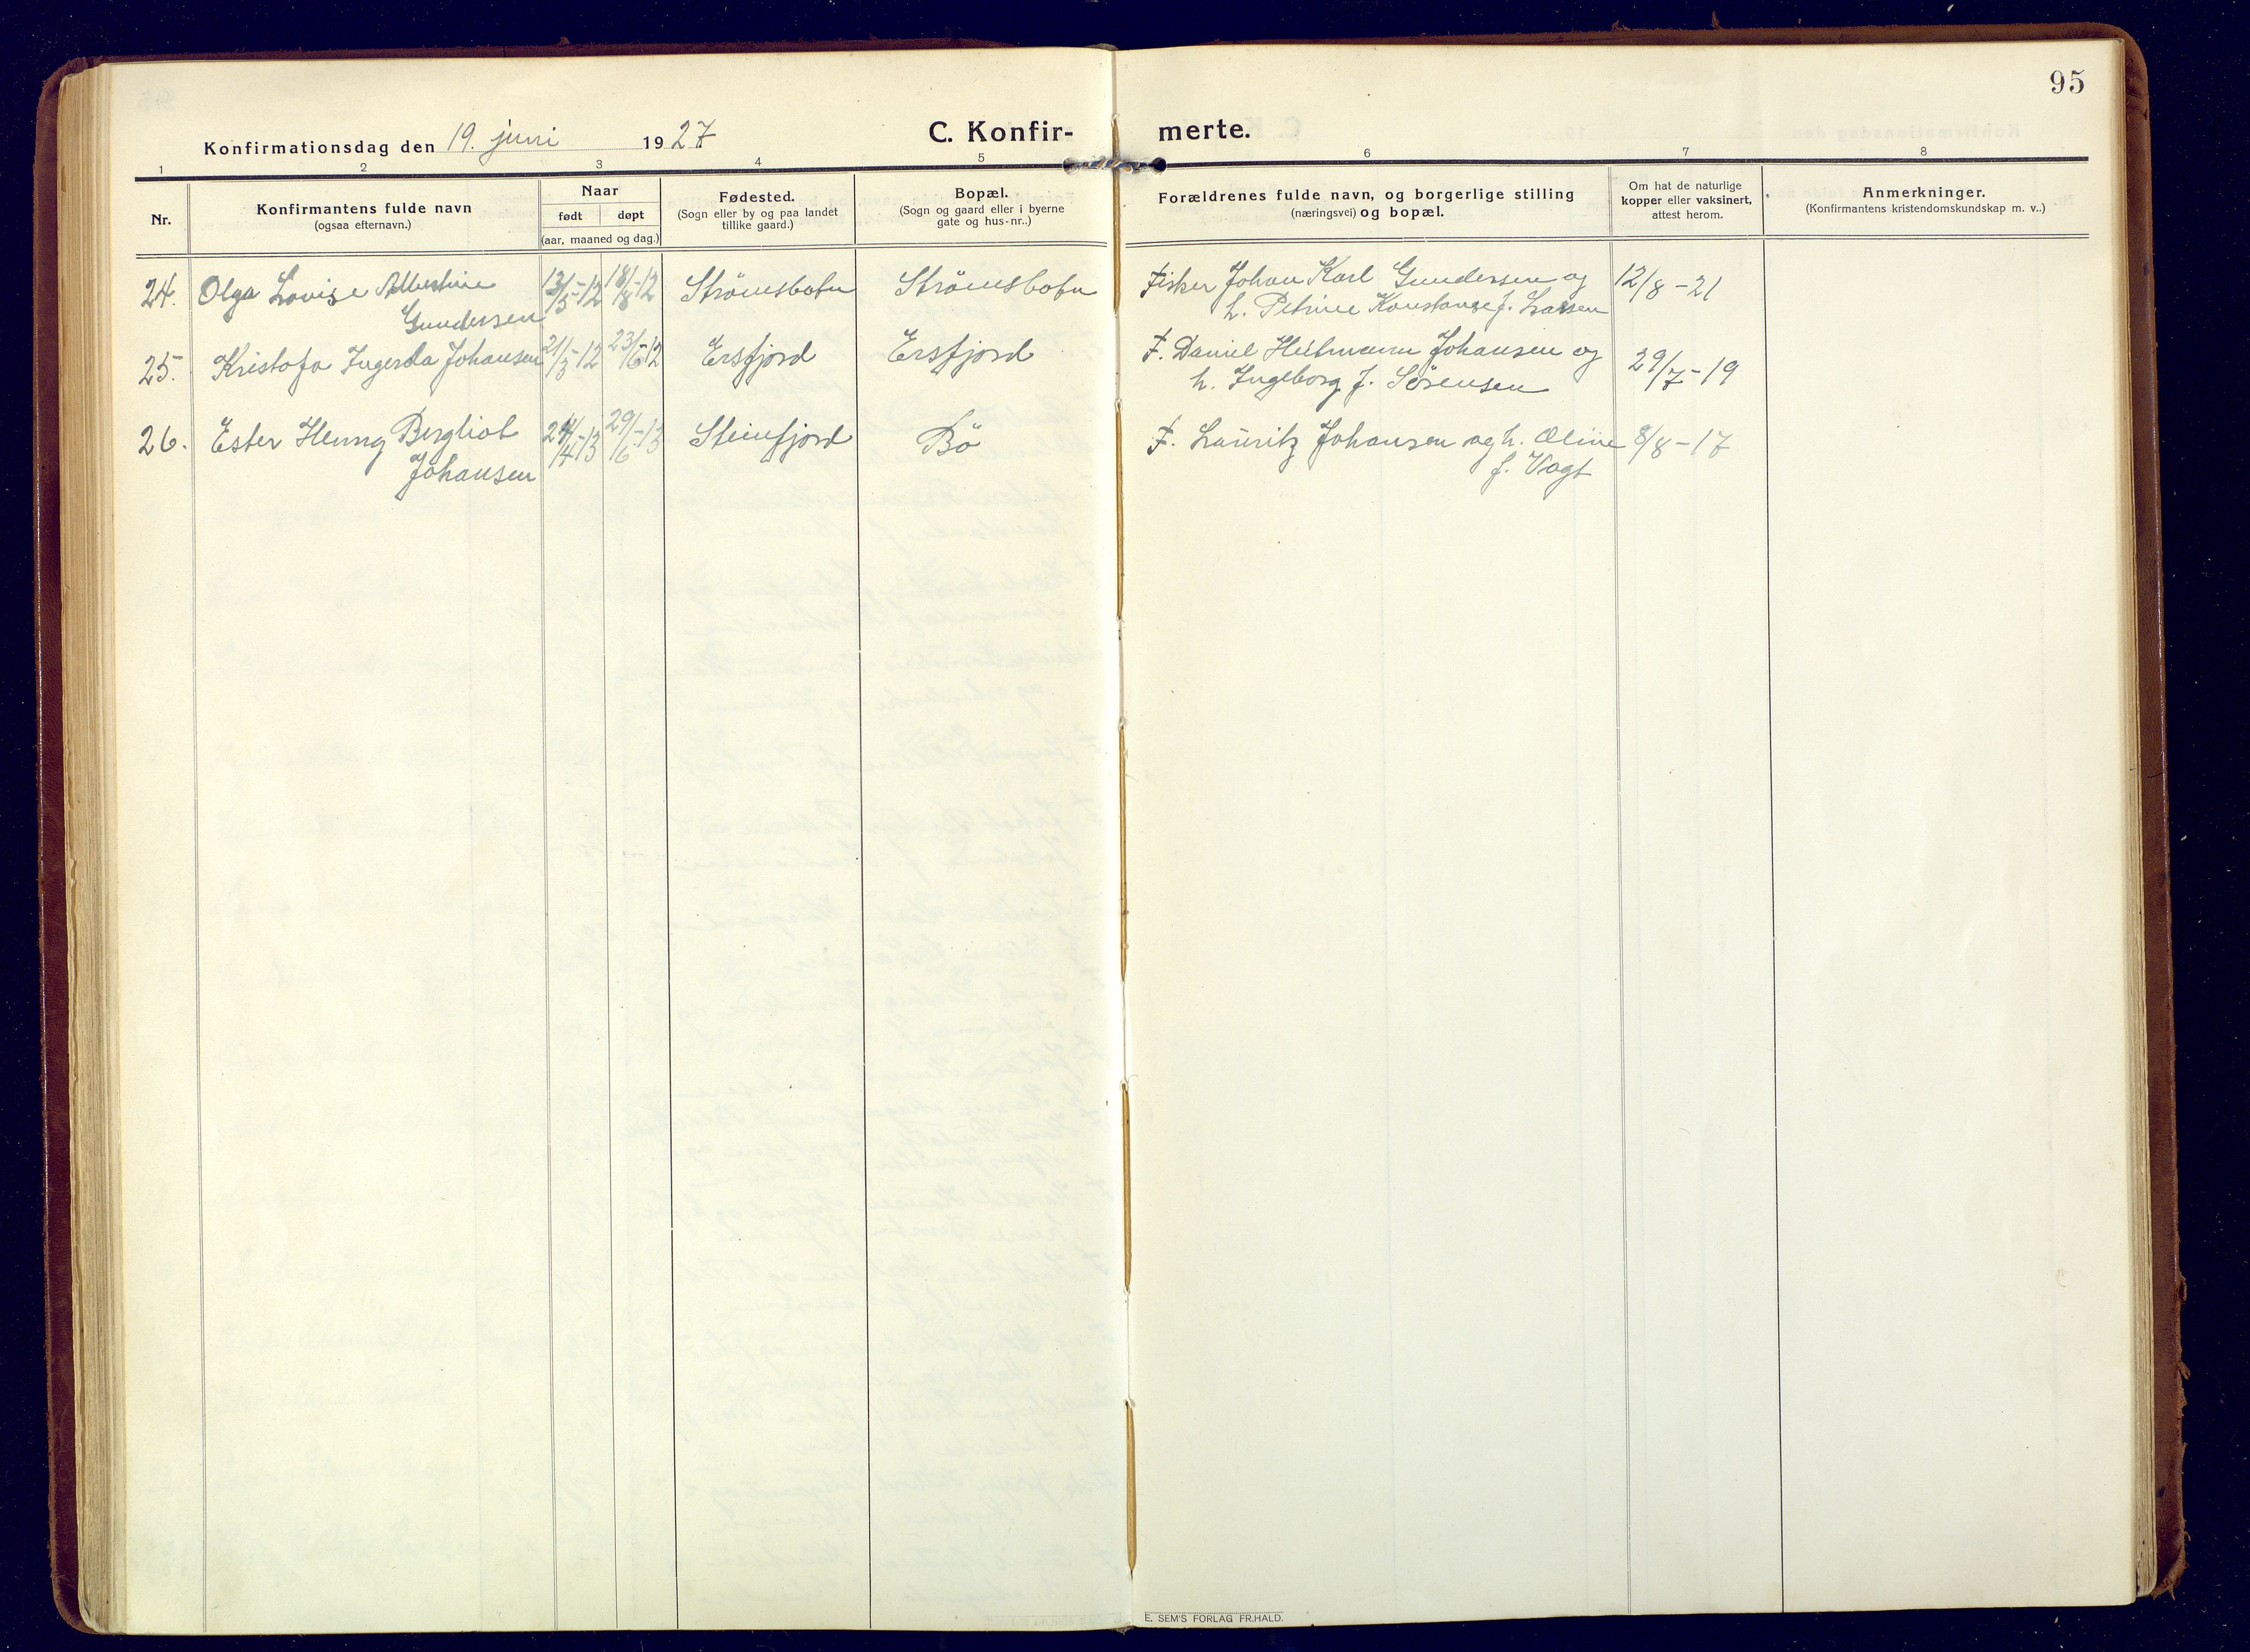 95
Konfirmationsdag den 19. juni 1927
C. Konfir- merte.
1 2 3 4 5 6 7 8
Nr.
Konfirmantens fulde navn
(ogsaa efternavn.)
Naar
født døpt
(aar, maaned og dag.)
Fødested.
(Sogn eller by og paa landet
tillike gaard.)
Bopæl.
(Sogn og gaard eller i byerne
gate og hus-nr..)
Forældrenes fulde navn, og borgerlige stilling
(næringsvei) og bopæl.
Om hat de naturlige
kopper eller vaksinert,
attest herom.
Anmerkninger.
(Konfirmantens kristendomskundskap m. v..)
24. Olga Lovise Albertine 13/5-12 18/8-12 Strömsbotn Strömsbotn Fisker Johan Karl Gundersen og 12/8-21
Gundersen h. Petrine Konstanse f. Larsen
25. Kristofa Ingerda Johansen 21/3-12 23/6-12 Ersfjord Ersfjord F. Daniel Heitmann Johansen og 29/7-19
h. Ingeborg f. Sörensen
26. Ester Henny Bergliot 24/4-13 29/6-13 Steinfjord Bö F. Lauritz Johansen og h. Oline 8/8-17
Johansen f. Vogt
E. SEM'S FORLAG FR.HALD.